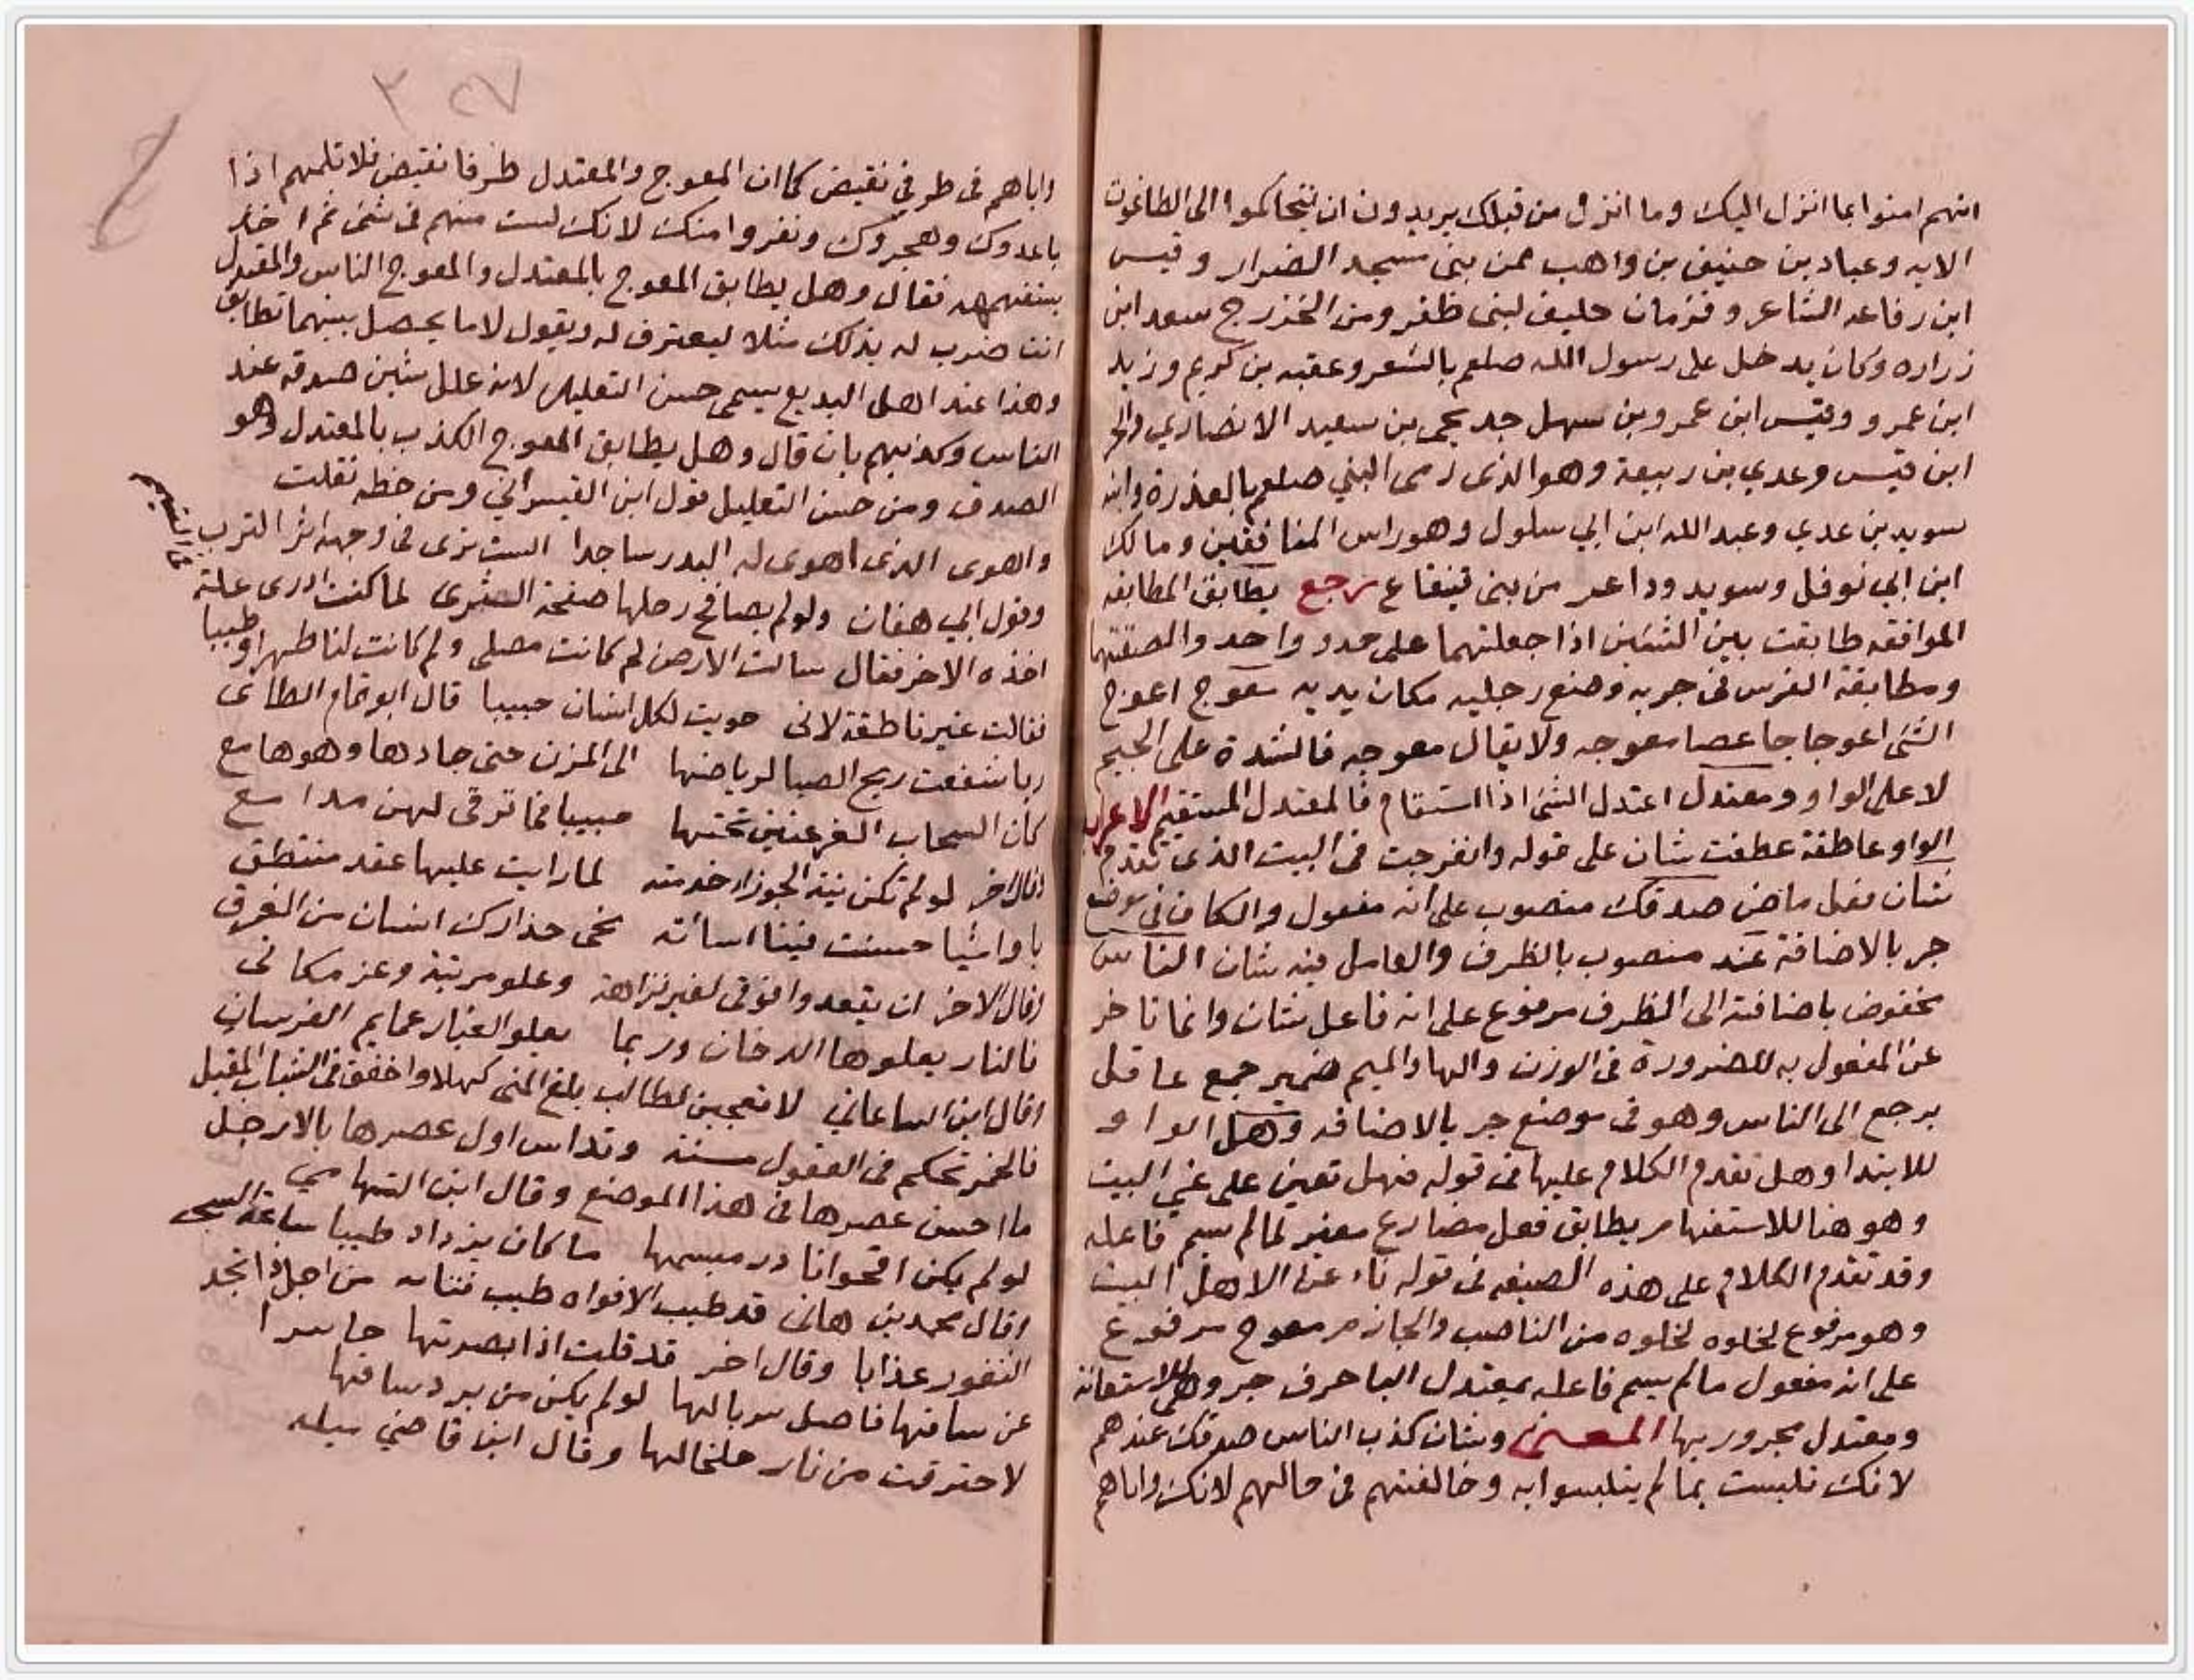 انهم امنوا بما انزل اليك وما انزل من قبلك يريدون ان يتحاكموا الى الطاغوت
الايه وعباد بن حنيف بن واهب ممن بنى مسجد الضرار وقيس
ابن رفاعه الشاعر وقزمان حليف لبنى ظفر ومن الخزرج سعد ابن
زراره وكان يدخل على رسول الله صلعم بالشعر وعقبه بن كريم وزيد
ابن عمرو وقيس ابن عمرو بن سهل جد يحيى بن سعيد الانصاري والحر
ابن قيس وعدي بن ربيعة وهو الذى رمى النبي صلعم بالعذرة وابنه
سويد بن عدي وعبد الله ابن ابي سلول وهو راس المنافقين ومالك
ابن ابي نوفل وسويد وداعس من بنى قينقاع رجع يطابق المطابقه
الموافقه طابقت بين الشئين اذا جعلتهما على حدو واحد والصقتهما
ومطابقة الفرس فى جريه وضع رجليه مكان يديه معوج اعوج
الشئ اعوجاجا عصا معوجه ولا يقال معوجه فالشدة على الجيم
لا على الواو ومعتدل اعتدل الشئ اذا استقام فالمعتدل المستقيم الاعراب
الواو عاطفة عطفت شان على قوله وانفرجت فى البيت الذى تقدم
شان فعل ماض صدقك منصوب على انه مفعول والكاف فى موضع
جر بالاضافة عند منصوب بالظرف والعامل فيه شان الناس
مخفوض باضافته الى الظرف مرفوع على انه فاعل شان وانما تاخر
عن المفعول به للضرورة فى الوزن والها والميم ضمير جمع عاقل
يرجع الى الناس وهو فى موضع جر بالاضافه وهل الواو
للابتدا وهل تقدم الكلام عليها فى قوله فهل تعين على غي البيت
وهو هنا للاستفهام يطابق فعل مضارع مغير لما لم يسم فاعله
وقد تقدم الكلام على هذه الصيغه فى قوله ناء عن الاهل البيت
وهو مرفوع لخلوه لخلوه من الناصب والجازم معوج مرفوع
على انه مفعول ما لم يسم فاعله بمعتدل البا حرف جر وهى للاستعانة
ومعتدل مجرور بها المعنى وشان كذب الناس صدقك عندهم
لانك تلبست بما لم يتلبسوا به وخالفتهم فى حالهم لانك واياهم
واياهم فى طرفي نقيض كما ان المعوج والمعتدل طرفا نقيض فلا تلمهم اذا
باعدوك وهجروك ونفروا منك لانك لست منهم فى شئ ثم اخذ
يستفهمه فقال وهل يطابق المعوج بالمعتدل والمعوج الناس والمعتدل
انت ضرب له بذلك مثلا ليعترف له ويقول لا ما يحصل بينهما تطابق
وهذا عند اهل البديع يسمى حسن التعليل لانه علل شين صدقه عند
الناس وكذبهم بان قال وهل يطابق المعوج الكذب بالمعتدل وهو
الصدق ومن حسن التعليل قول ابن القيسراني ومن خطه نقلت
واهوى الذى اهوى له البدر ساجدا الست ترى فى وجهه اثر الترب
وقول ابي هفان ولو لم يصافح رجلها صفحة الثرى لما كنت ادرى علة للتيمم
اخذه الاخر فقال سالت الارض لم كانت مصلى ولم كانت لنا طهرا وطيبا
فقالت غير ناطقة لانى حويت لكل انسان حبيبا قال ابو تمام الطائى
ربا شفعت ريح الصبا لرياضها الى المزن حتى جادها وهو هامع
كان السحاب الغر غيبن تحتها حبيبا فما ترقى لهن مدامع
وقال اخر لو لم تكن نية الجوزا خدمته لما رايت عليها عقد منتطق
يا واشيا حسنت فينا اساته نجى حذارك انسان من الغرق
وقال الاخر ان يقعدوا فوقى لغير نزاهة وعلو مرتبة وعز مكانى
فالنار يعلوها الدخان وربما يعلو الغبار عمايم الفرسان
وقال ابن الساعاتي لا تعجبن لطالب بلغ المنى كهلا واخفق فى الشباب المقبل
فالخمر تحكم فى العقول مسنة وتداس اول عصرها بالارجل
ما احسن عصرها فى هذا الموضع وقال ابن التهامي
لو لم يكن اقحوانا در مبسمها ما كان يزداد طيبا ساعة السحر
وقال محمد بن هانى قد طيب الافواه طيب ثنائه من اجل ذا تجد
الثغور عذابا وقال اخر قد قلت اذ ابصرتها حاسرا
عن ساقها فاضل سربالها لو لم يكن من برد ساقها
لاحترقت من نار خلخالها وقال ابن قاضي ميله